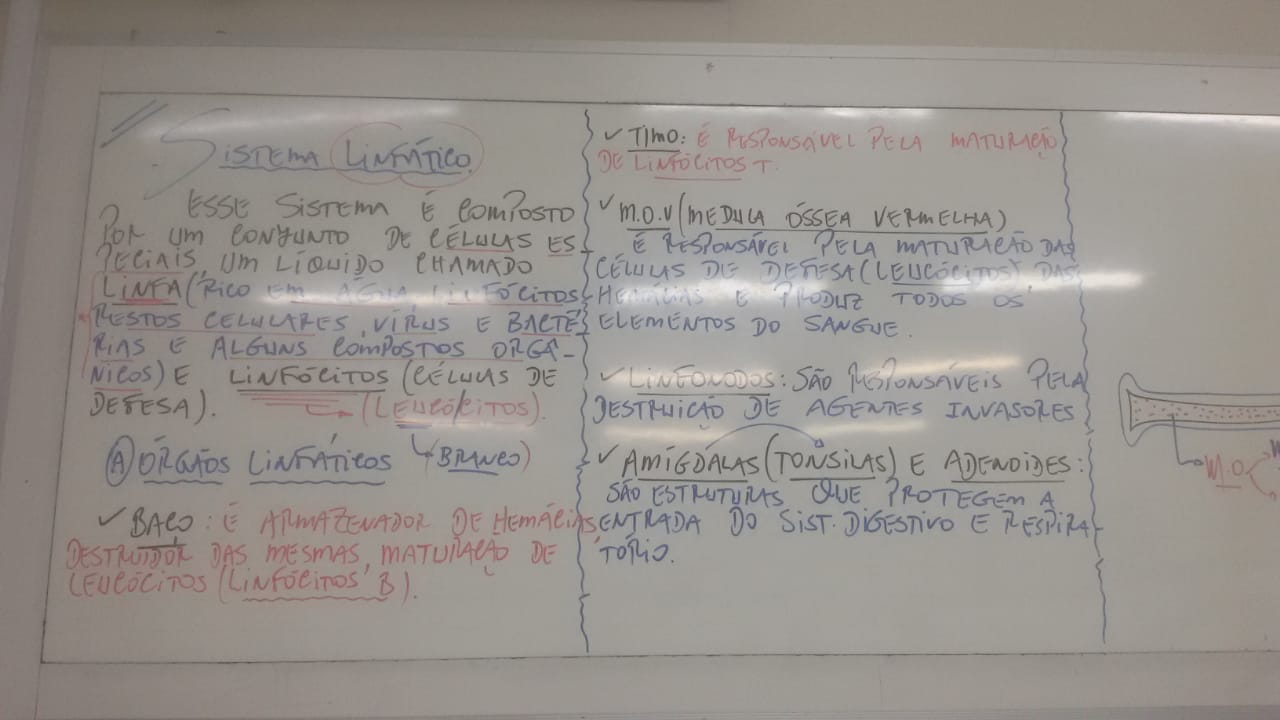 SISTEMA LINFÁTICO.
ESSE SISTEMA É COMPOSTO
POR UM CONJUNTO DE CÉLULAS ES-
PECIAIS, UM LÍQUIDO CHAMADO
LINFA (RICO EM ÁGUA, LINFÓCITOS,
RESTOS CELULARES, VÍRUS E BACTÉ-
RIAS E ALGUNS COMPOSTOS ORGÂ-
NICOS) E LINFÓCITOS (CÉLULAS DE
DEFESA). (LEUCÓCITOS).
(BRANCO)
A ÓRGÃOS LINFÁTICOS
✓ BAÇO: É ARMAZENADOR DE HEMÁCIAS,
DESTRUIDOR DAS MESMAS, MATURAÇÃO DE
LEUCÓCITOS (LINFÓCITOS B).
✓ TIMO: É RESPONSÁVEL PELA MATURAÇÃO
DE LINFÓCITOS T.
✓ M.O.V (MEDULA ÓSSEA VERMELHA)
É RESPONSÁVEL PELA MATURAÇÃO DAS
CÉLULAS DE DEFESA (LEUCÓCITOS), DAS
HEMÁCIAS E PRODUZ TODOS OS
ELEMENTOS DO SANGUE.
✓ LINFONODOS: SÃO RESPONSÁVEIS PELA
DESTRUIÇÃO DE AGENTES INVASORES
✓ AMÍGDÁLAS (TONSILAS) E ADENOIDES:
SÃO ESTRUTURAS QUE PROTEGEM A
ENTRADA DO SIST. DIGESTIVO E RESPIRA-
TÓRIO.
M.O